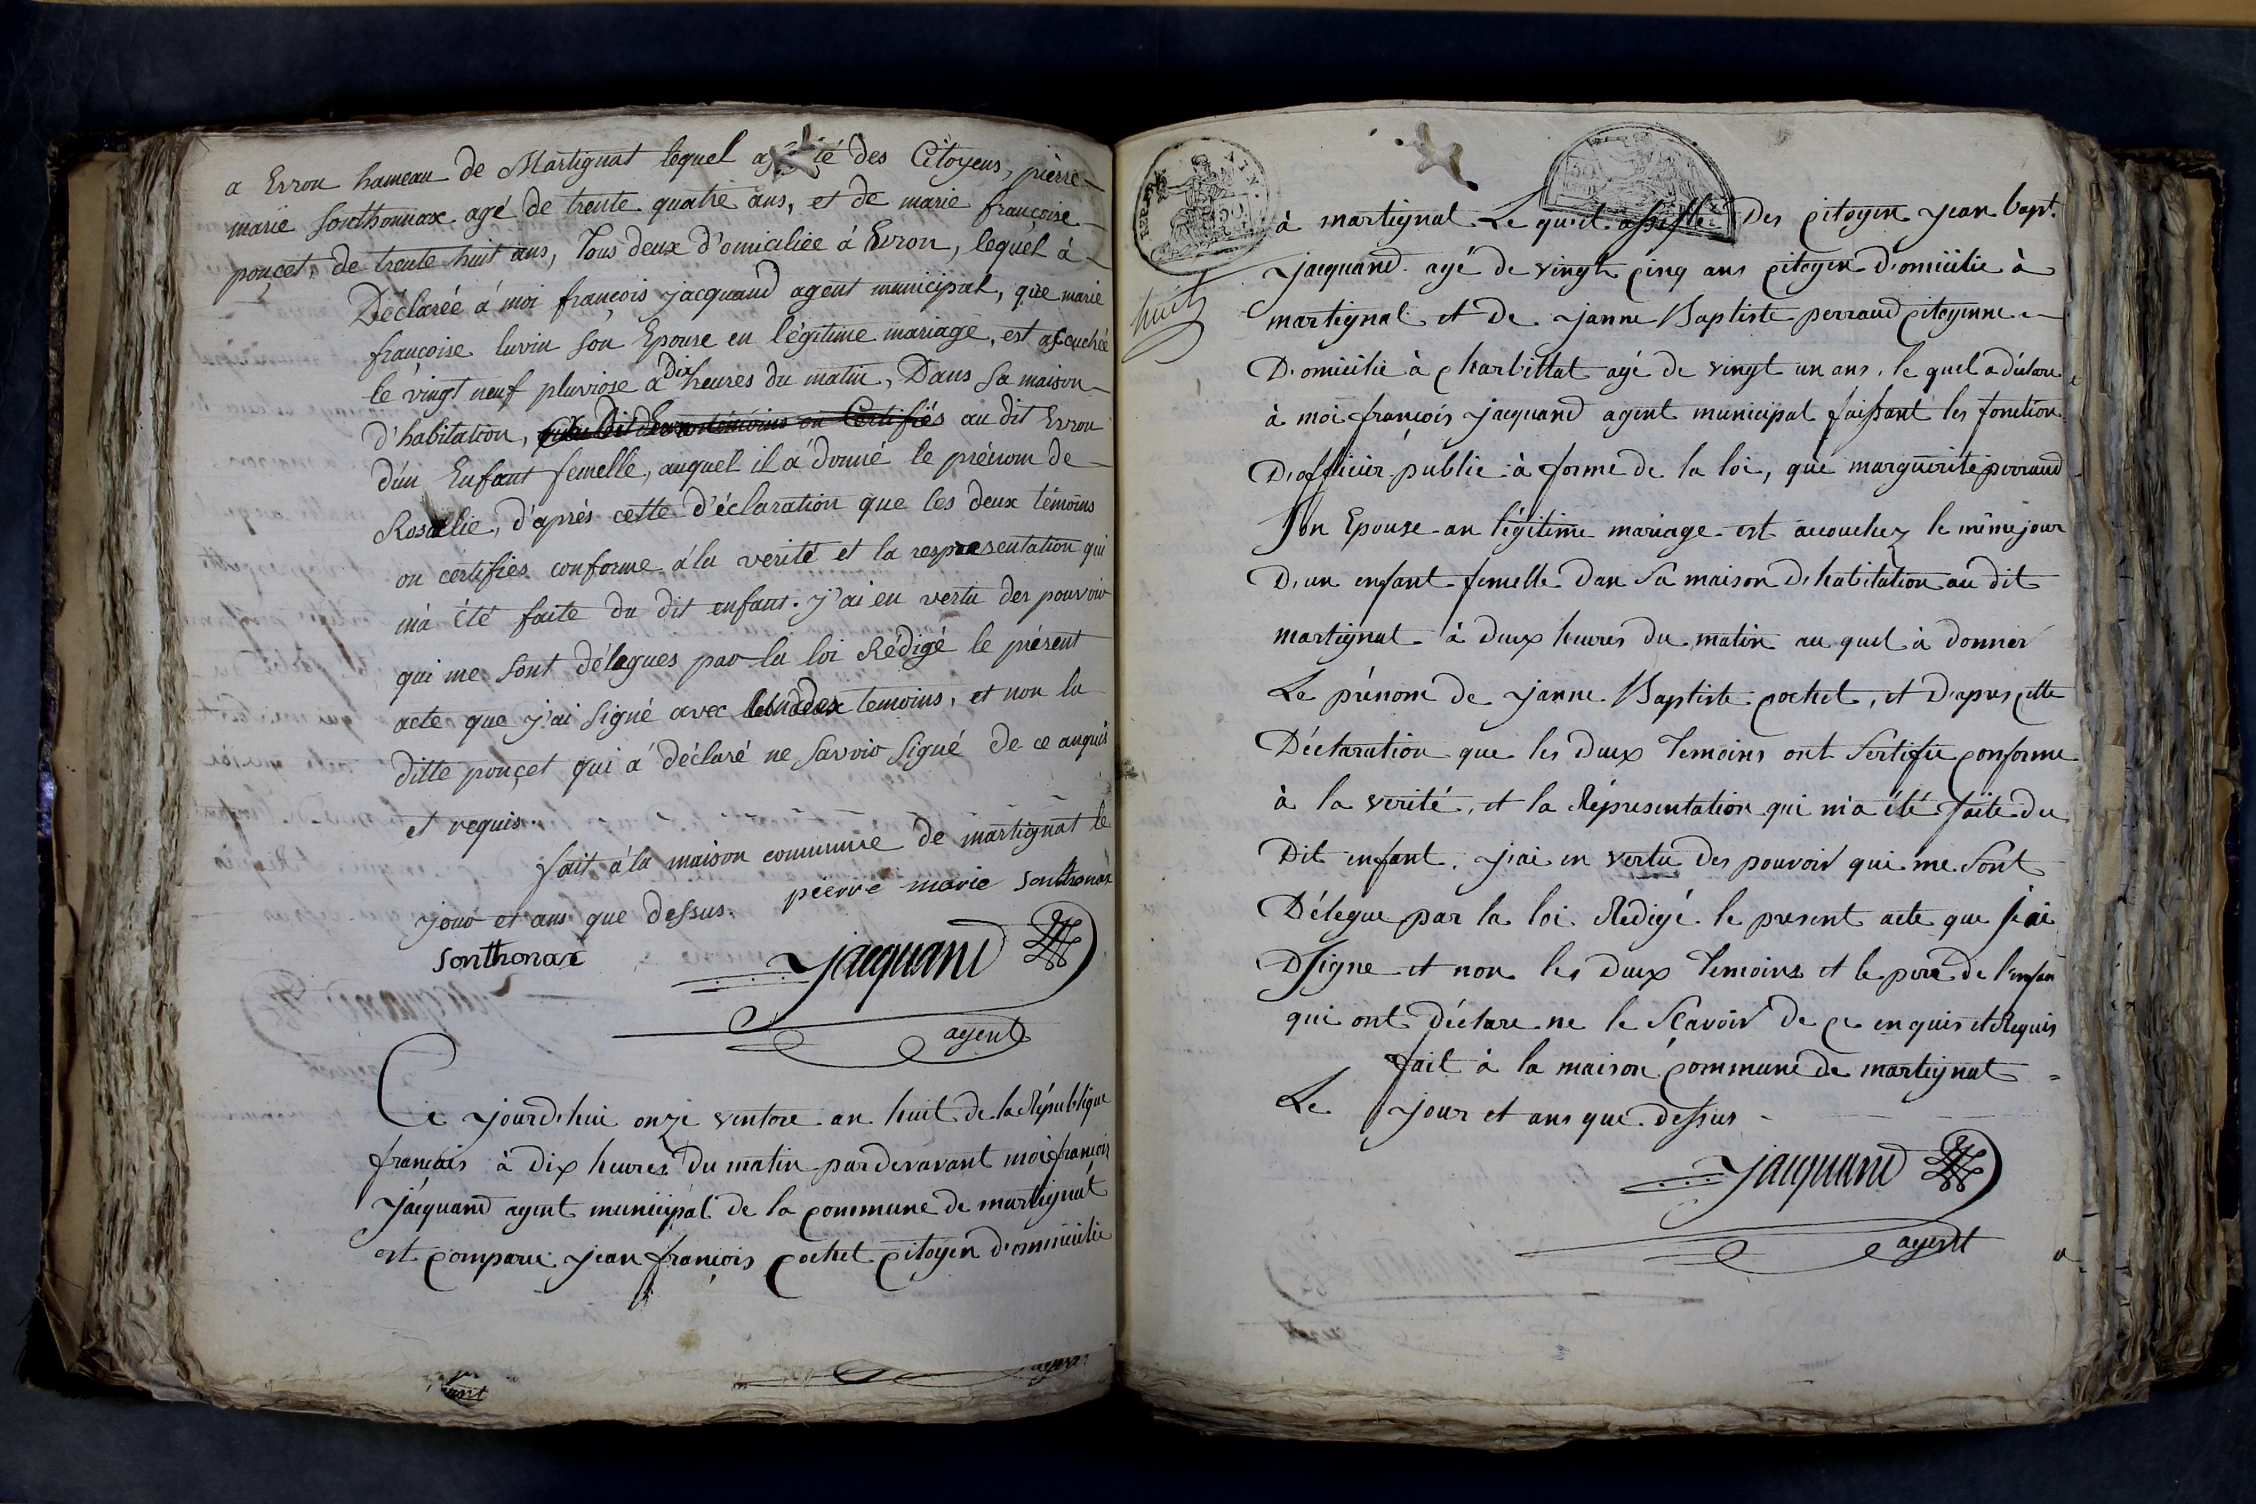 a Evron hameau de Martignat lequel assisté des Citoyens, pierre-
marie Sonthonnax agé de trente quatre ans, et de marie françoise
ponçet, de trente huit ans, tous deux d'omiciliée á Evron, lequel à
Déclarée á moi françois jacquand agent municipal, que marie
françoise luvin son Epouse en légitime mariage, est acouchée
le vingt neuf pluviose a dix heures du matin, Dans sa maison
d'habitation, au dit Evron
d'un Enfant femelle, auquel il á donné le prénom de
Rosalie, d'après cette d'éclaration que les deux témoins
on certifiés conforme á la verité et la respresentation qui
m'à été faite du dit enfant. j'ai en vertu des pouvoir
qui me sont délegues par la loi Rédigé le présent
acte que j'ai signé avec temoins, et non la
ditte ponçet qui á déclaré ne savoir signé de ce anquis
et requis.
fait á la maison commune de martignat le
jour et ans que dessus. pierre marie sonthonax
sonthonax
jacquand
agent
Ce jourd'hui onze ventore an huit de la République
français à dix heures du matin pardevavant moi françois
Jacquand agent municipal de la commune de martignat
est comparu jean françois cochet citoyen d'omicilie
agent
huit
à martignat Le quel assiste Des citoyen jean bapt.
jacquand agé de vingt cinq ans citoyen d'omicilie à
martignat et de janne Baptiste perraud citoyenne
D'omicilié à charbillat agé de vingt un ans, le quel a déclare
à moi françois jacquand agent municipal faissant les fonction
D'officier public à forme de la loi, que marguerite perraud
son Epouse an légitime mariage est acouchez le même jour
D'un enfant femelle dan sa maison d'habitation au dit
martignat à deux heures du matin au quel à donner
Le prénom de janne Baptiste cochet, et D'apres cette
Déclaration que les deux temoins ont sertifié conforme
à la verité, et la Représentation qui m'a été faite du
Dit enfant, j'ai en vertu des pouvoir qui me sont
Délegue par la loi Redigé le present acte que j'ai
Dsigne et non les deux temoins et le pere de l'enfan
qui ont déclare ne le scavoir de ce enquis et Requis
fait à la maison commune de martignat
Le jour et ans que dessus
jacquand
agent